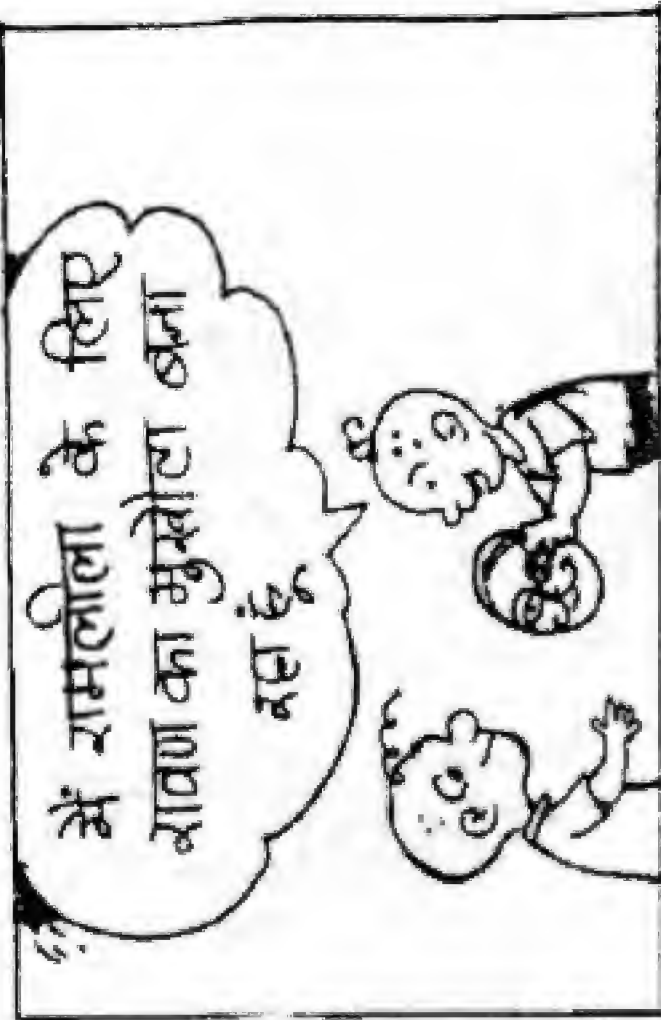 में रामलीला के लिए
रावण का मुखौटा बना
रहा हूं